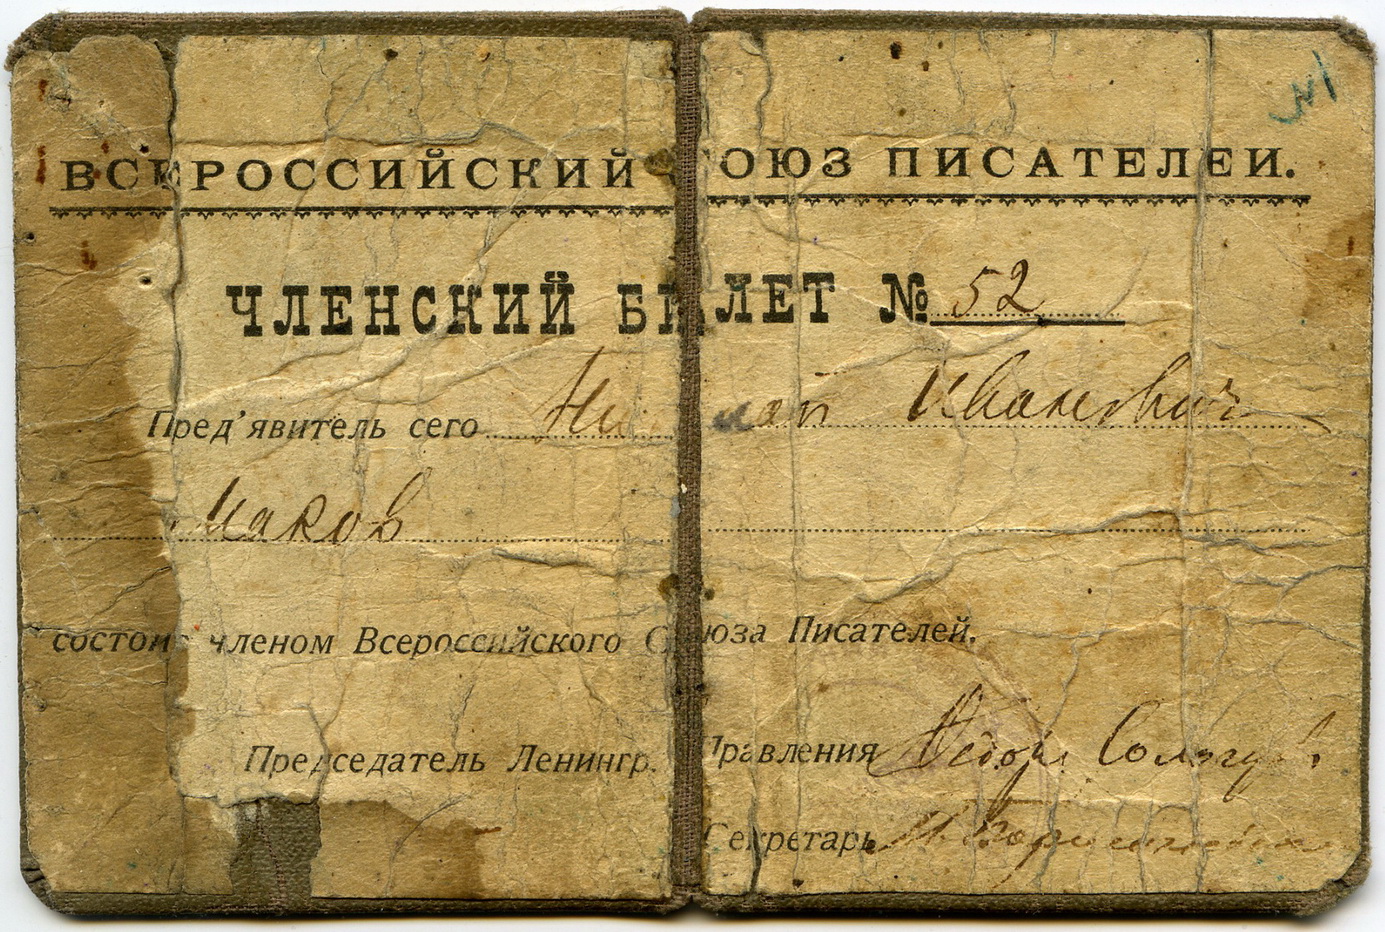 №1
ВСЕРОССИЙСКИЙ СОЮЗ ПИСАТЕЛЕЙ.
ЧЛЕНСКИЙ БИЛЕТ № 52
Пред'явитель сего Николай Иванович
Маков
состоит членом Всероссийского Союза Писателей.
Председатель Ленингр. Правления Федор Сологуб
Секретарь М. Борисоглебский